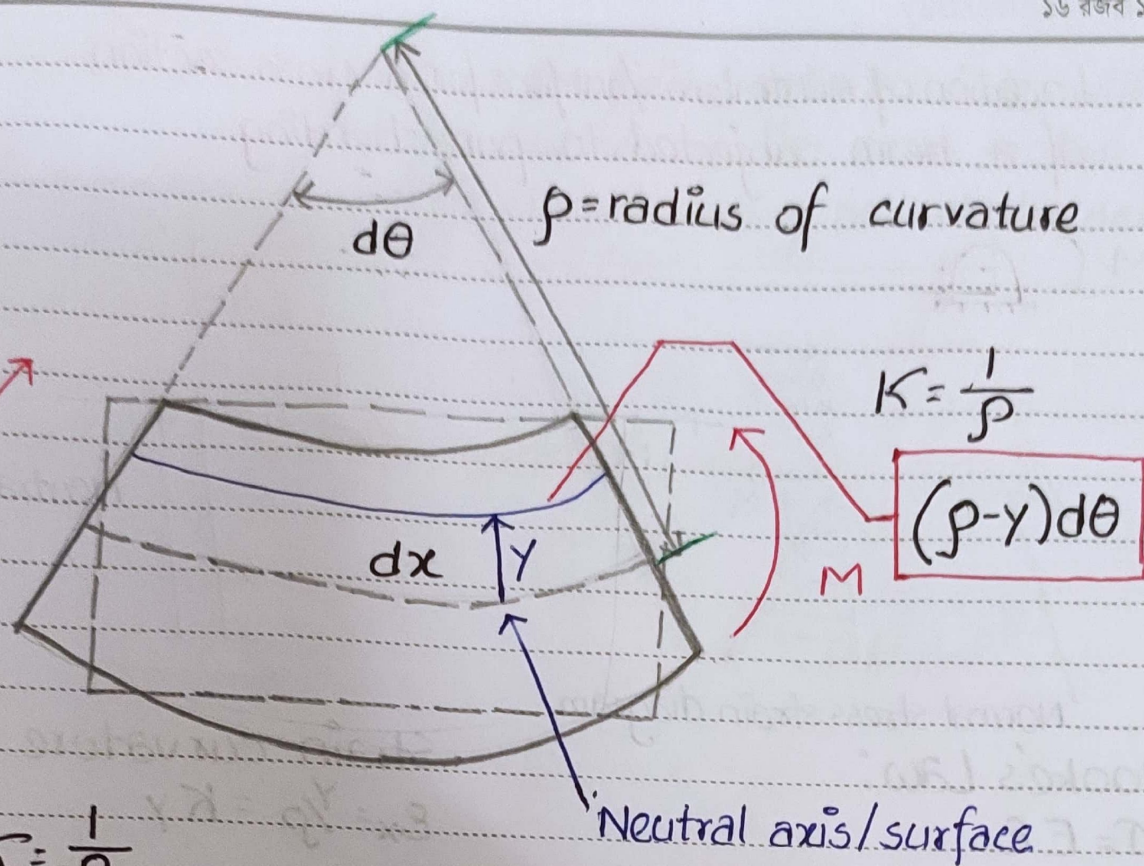 ১৬ রজব
dθ
ρ=radius of curvature
K=1/ρ
(ρ-y)dθ
dx
y
M
Neutral axis/surface